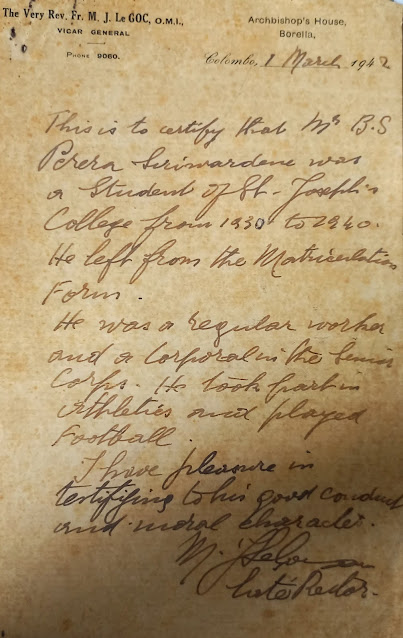 The Very Rev. Fr. M. J. Le GOC, O.M.I.,
VICAR GENERAL
PHONE 9060.
Archbishop's House,
Borella,
Colombo, 1 March 1942
This is to certify that Mr B.S
Perera Siriwardene was
a Student of St. Joseph's
College from 1930 to 1940.
He left from the Matriculation
Form.
He was a regular worker
and a Corporal in the Senior
Corps. He took part in
Athletics and played
Football.
I have pleasure in
testifying to his good conduct
and moral character.
M. J. Le Goc
Late Rector.